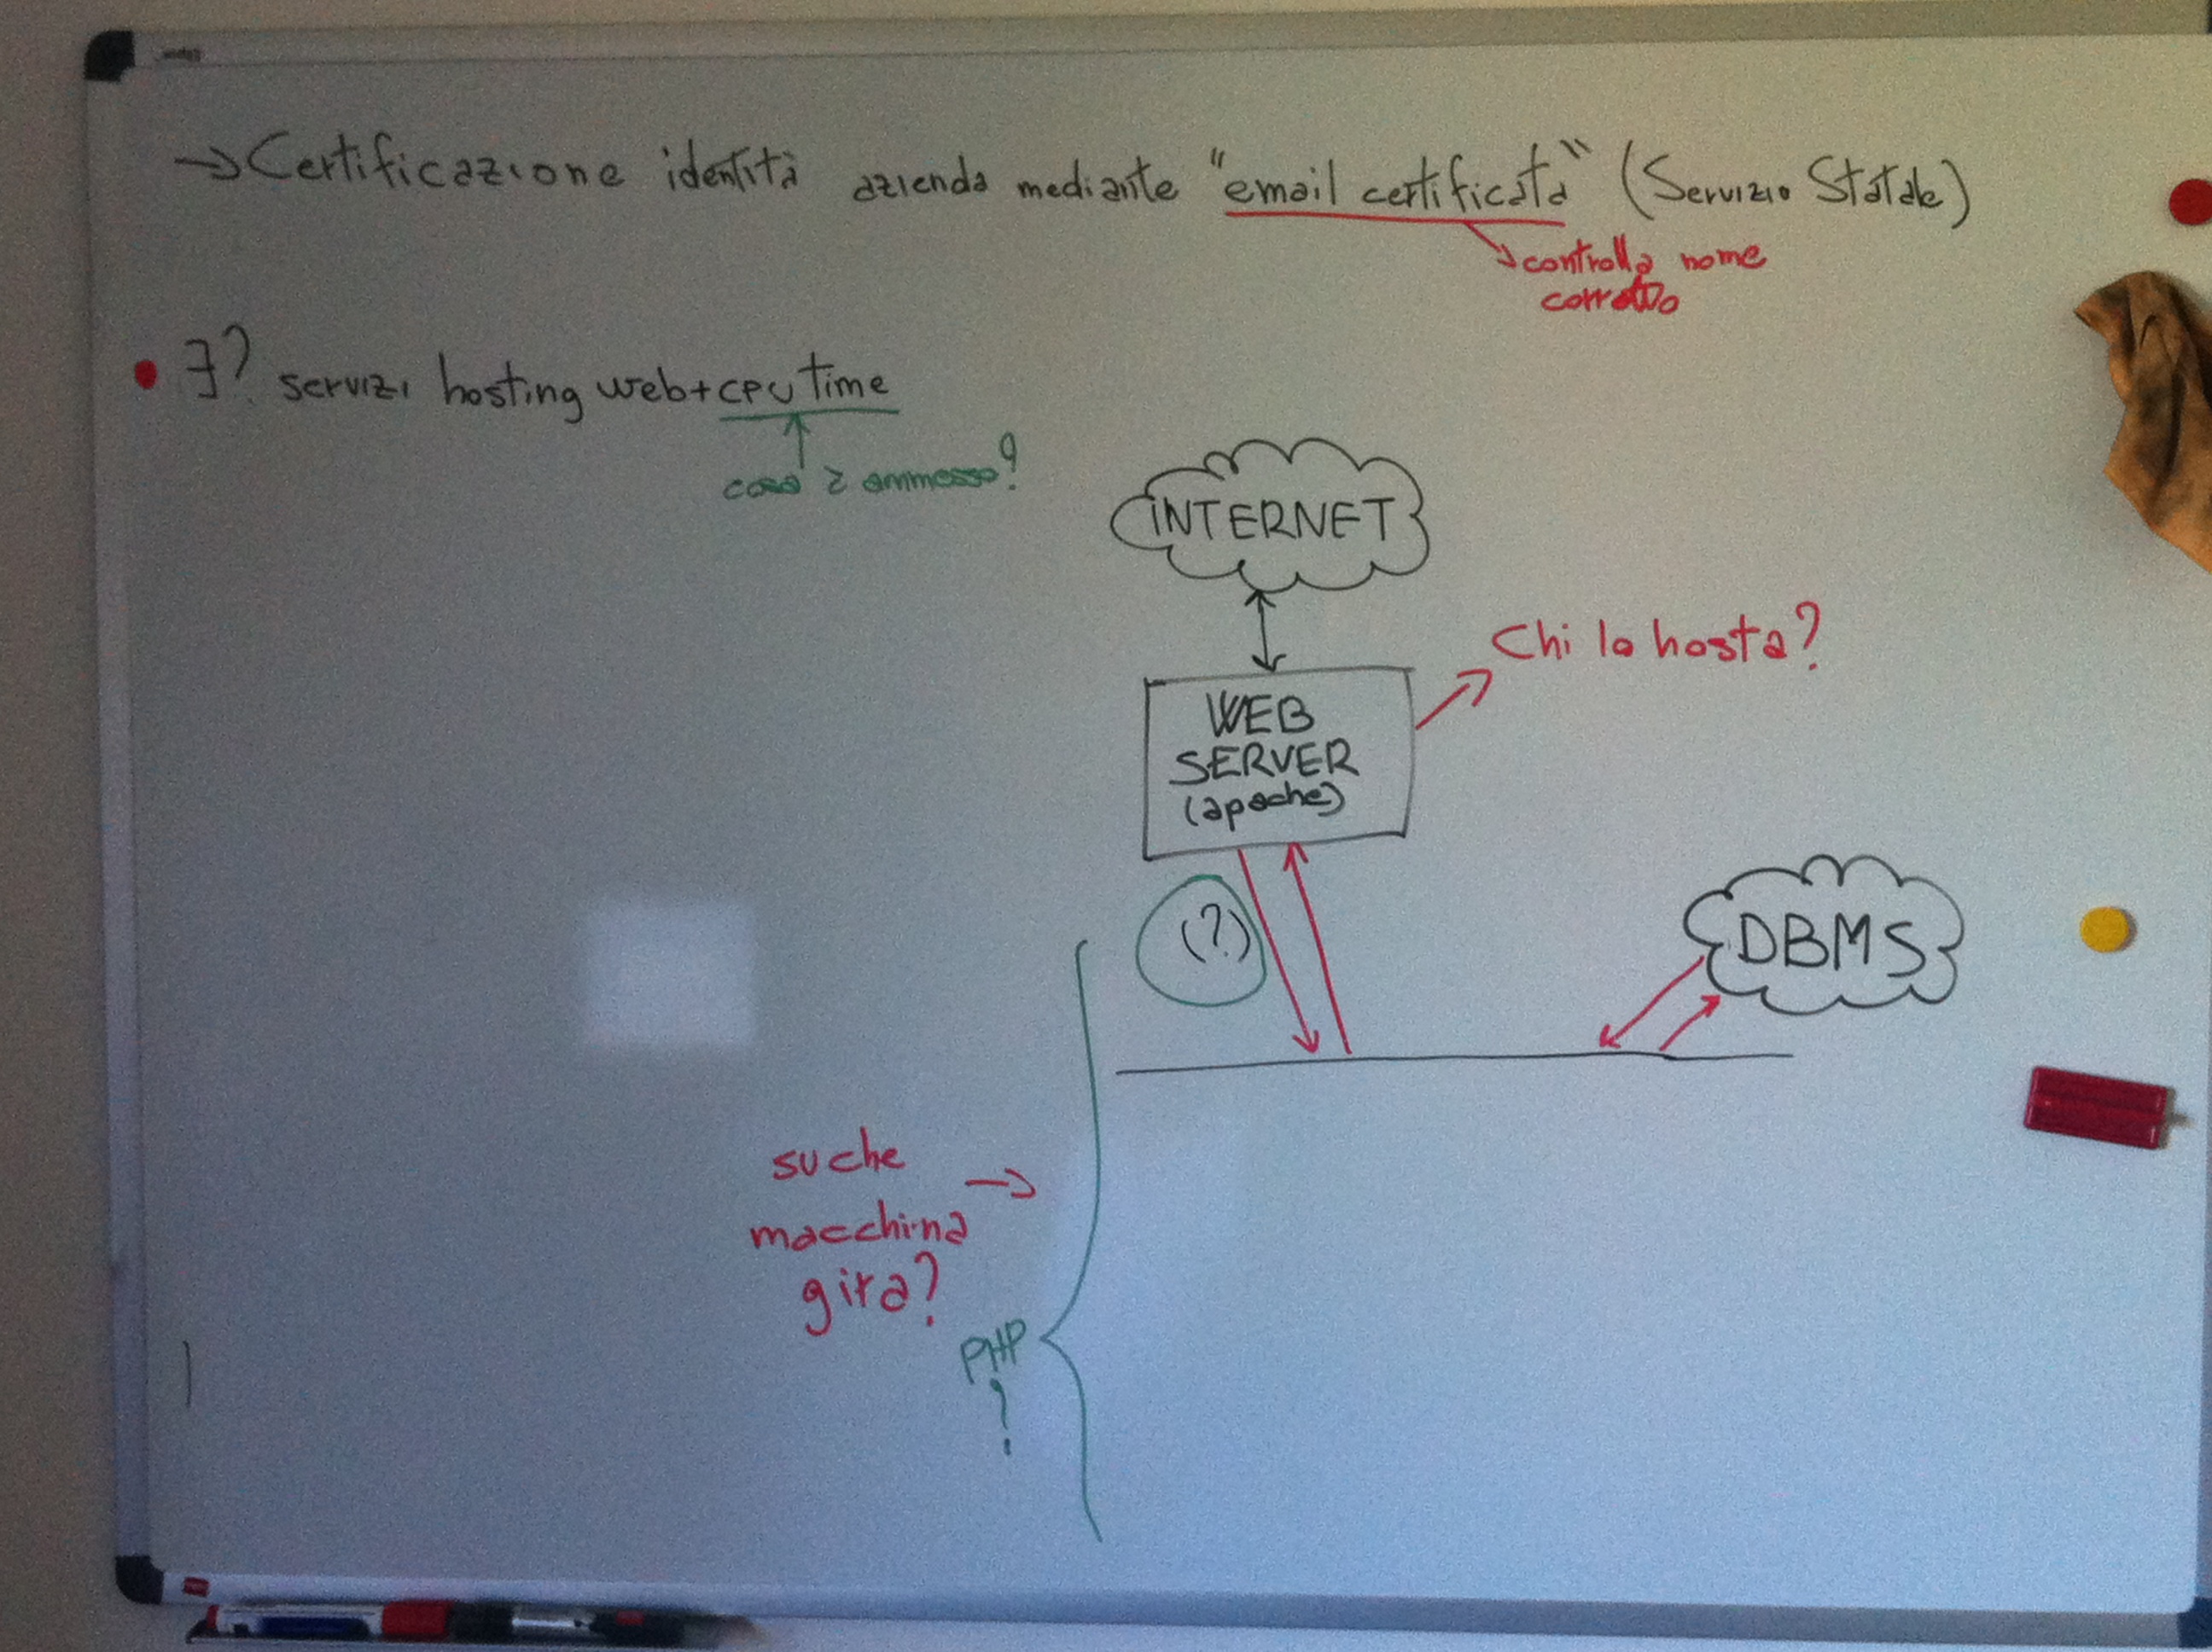 → Certificazione identità azienda mediante "email certificata" (Servizio Statale)
→ controlla nome
corretto
• ∃? servizi hosting web+cpu time
cosa è ammesso?
INTERNET
Chi lo hosta?
WEB
SERVER
(apache)
(?)
DBMS
su che →
macchina
gira?
PHP
?